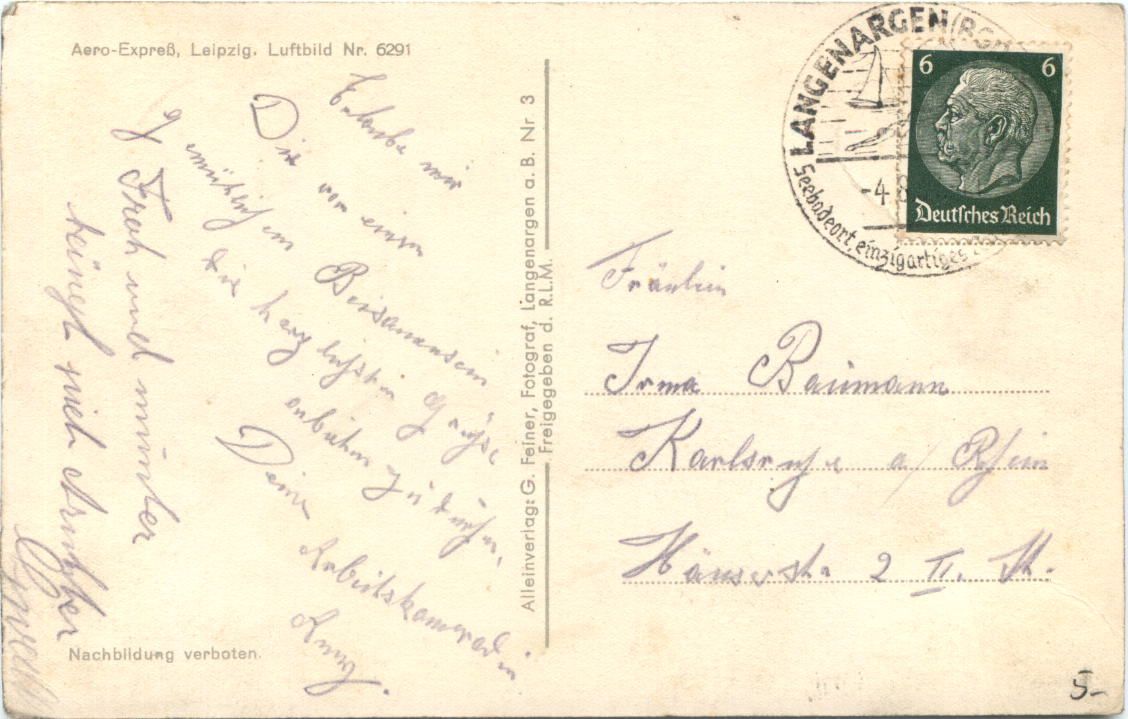 Aero-Expreß, Leipzig. Luftbild Nr. 6291
Erlaube mir
Dir von einem
gemütlichen Beisammensein
die herzlichsten Grüße
entbieten zu dürfen.
Deine
Arbeitskameradin
Anny.
Frah und munter
Nachbildung verboten.
Alleinverlag: G. Feiner, Fotograf, Langenargen a. B. Nr 3
Freigegeben d. R.L.M.
LANGENARGEN
-4.8
Seebadeort, einzigartiges
6 6
Deutsches Reich
Fräulein
Irma Baumann
Karlsruhe a/Rhein
Häuserstr. 2 II. St.
5-